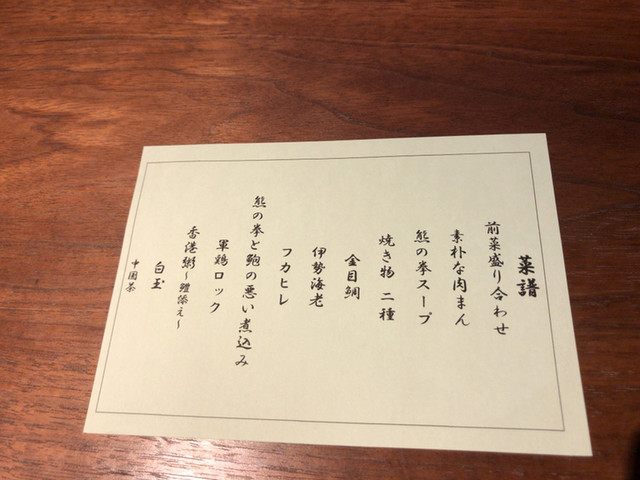 菜譜
前菜盛り合わせ
素朴な肉まん
熊の拳スープ
焼き物 二種
金目鯛
伊勢海老
フカヒレ
熊の拳と鮑の悪い煮込み
軍鶏ロック
香港粥～鱧添え～
白玉
中国茶